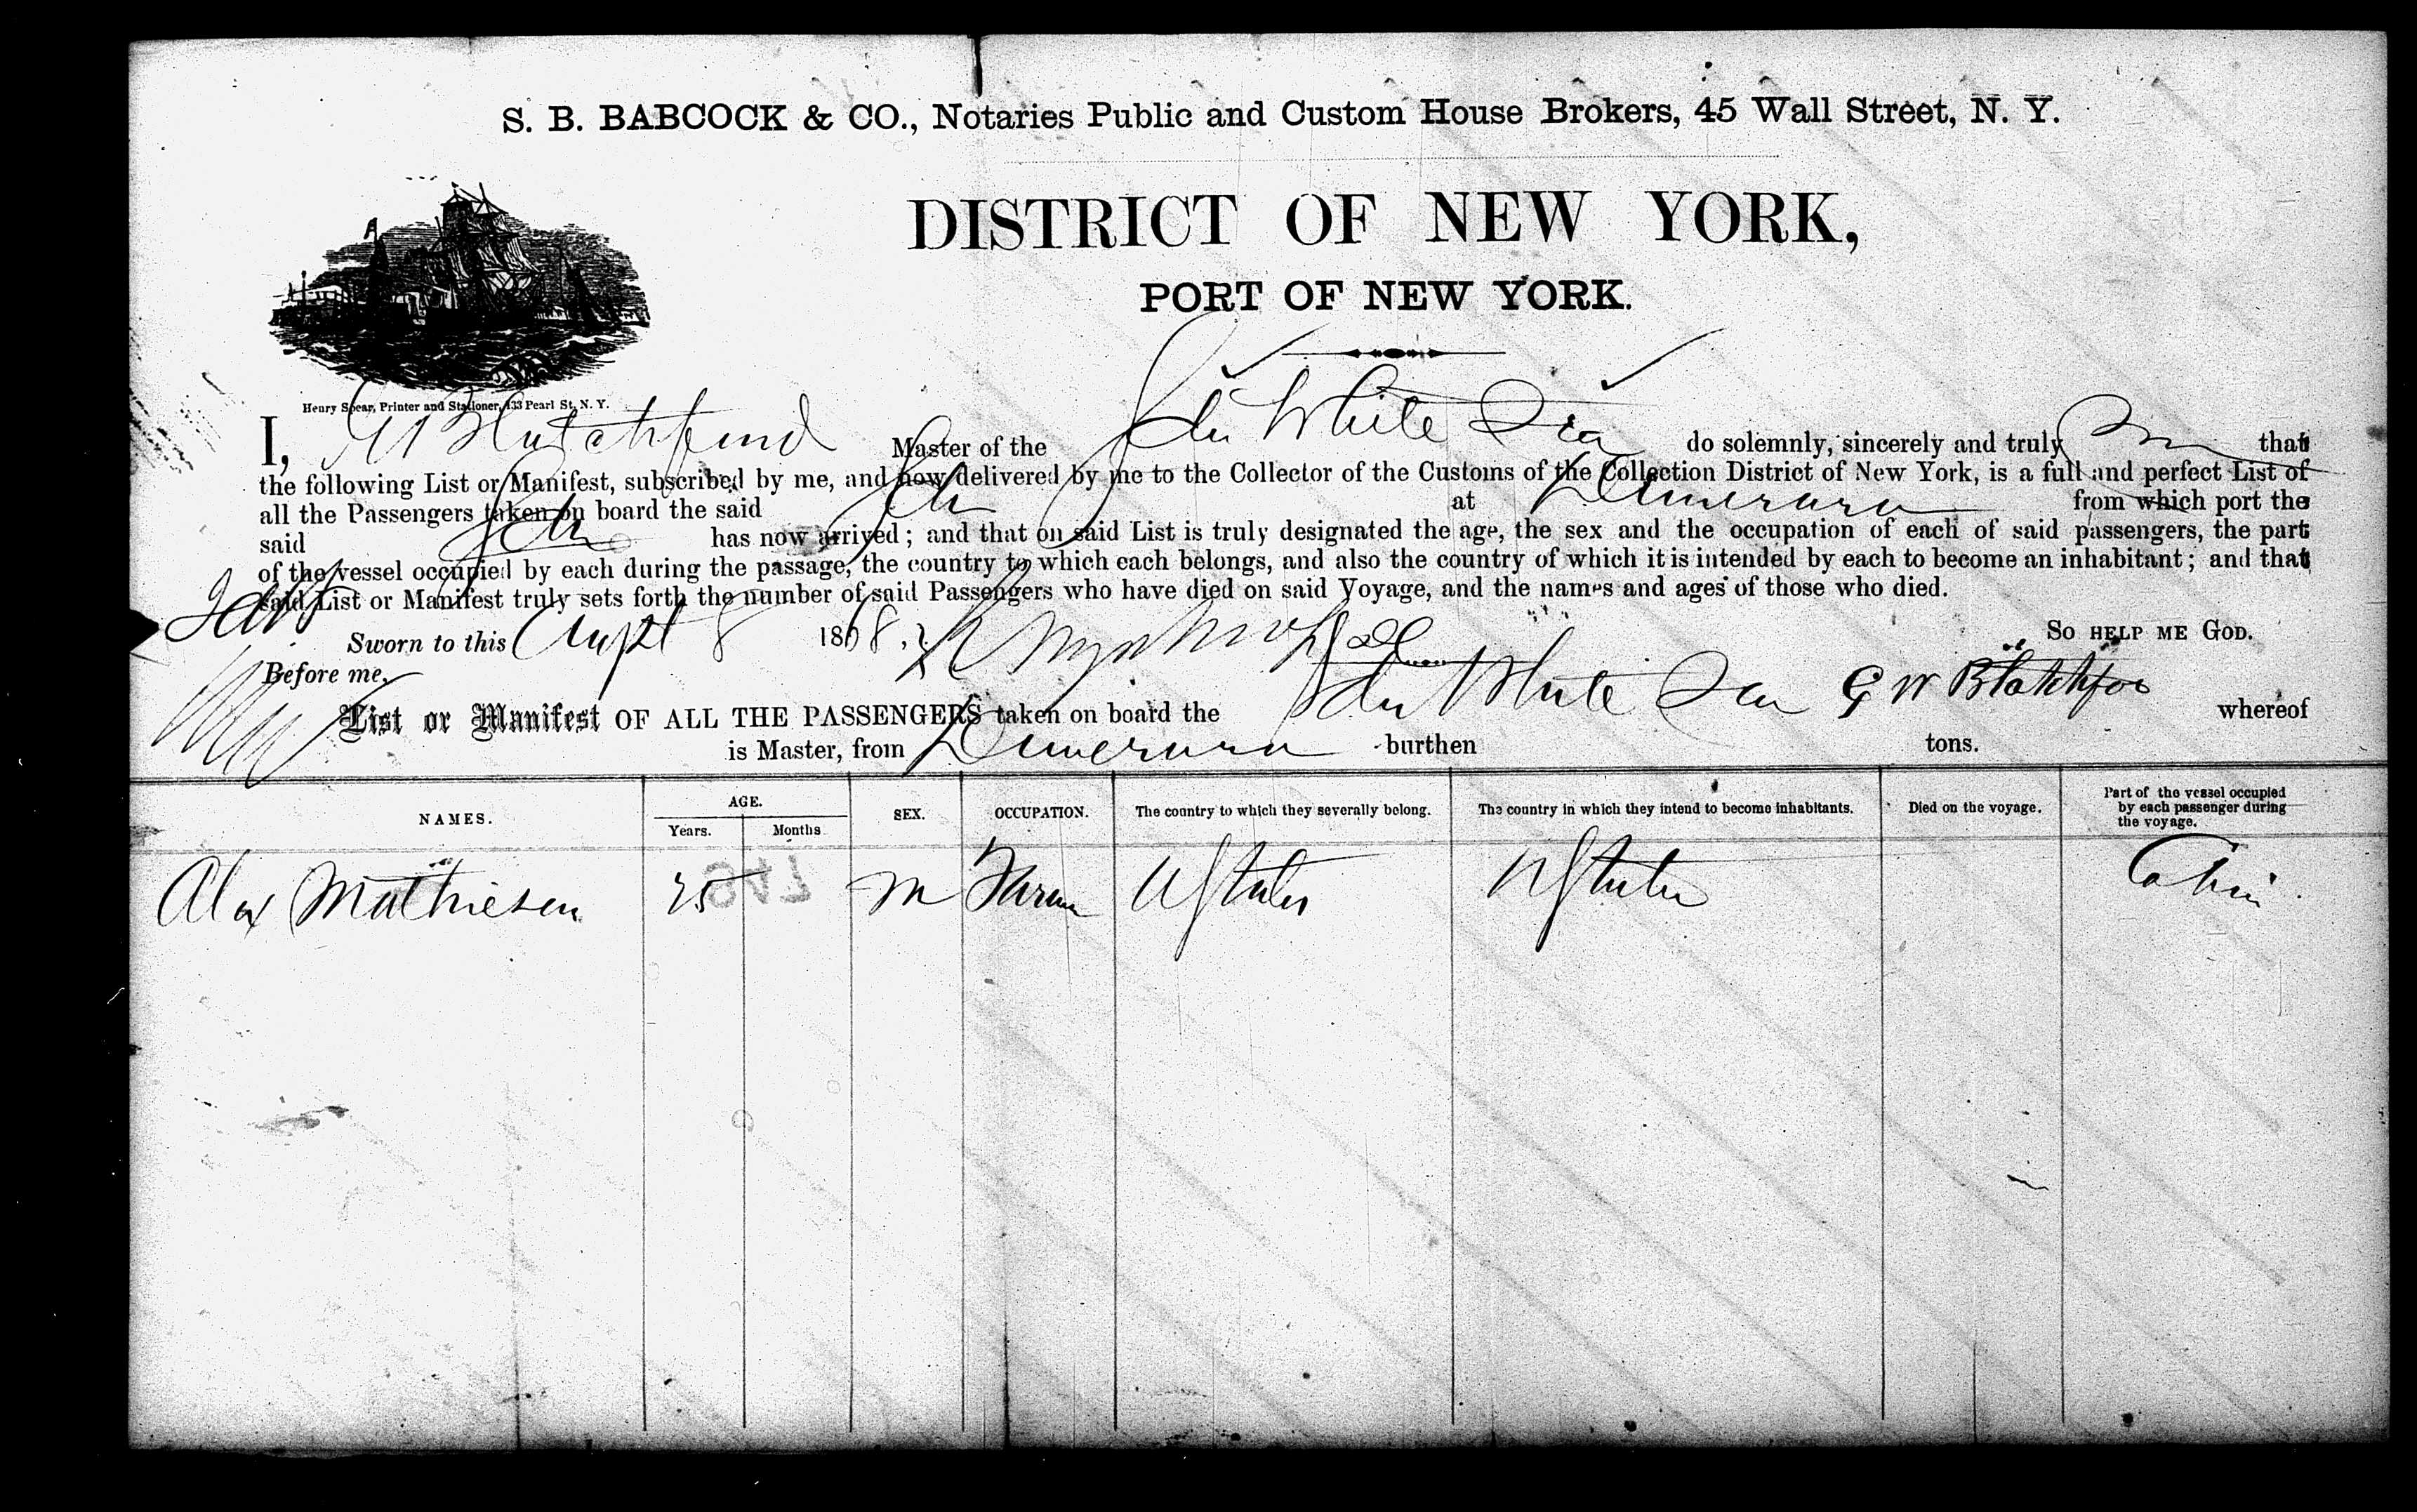 S. B. BABCOCK & CO., Notaries Public and Custom House Brokers, 45 Wall Street, N. Y.
DISTRICT OF NEW YORK,
PORT OF NEW YORK.
Henry Spear, Printer and Stationer, 133 Pearl St, N. Y.
I, G W Blatchford Master of the Schr White Sea do solemnly, sincerely and truly that
the following List or Manifest, subscribed by me, and now delivered by me to the Collector of the Customs of the Collection District of New York, is a full and perfect List of
all the Passengers taken on board the said Schr at Demerara from which port the
said Schr has now arrived; and that on said List is truly designated the age, the sex and the occupation of each of said passengers, the part
of the vessel occupied by each during the passage, the country to which each belongs, and also the country of which it is intended by each to become an inhabitant; and that
said List or Manifest truly sets forth the number of said Passengers who have died on said Voyage, and the names and ages of those who died.
Sworn to this Sept 8 1868. So HELP ME GOD.
Before me,
List or Manifest OF ALL THE PASSENGERS taken on board the Schr White Sea G W Blatchford whereof
is Master, from Demerara burthen tons.
NAMES. AGE. Years. Months. SEX. OCCUPATION. The country to which they severally belong. The country in which they intend to become inhabitants. Died on the voyage. Part of the vessel occupied by each passenger during the voyage.
Alex Mathiesen 25 M Farmer U States U States Cabin